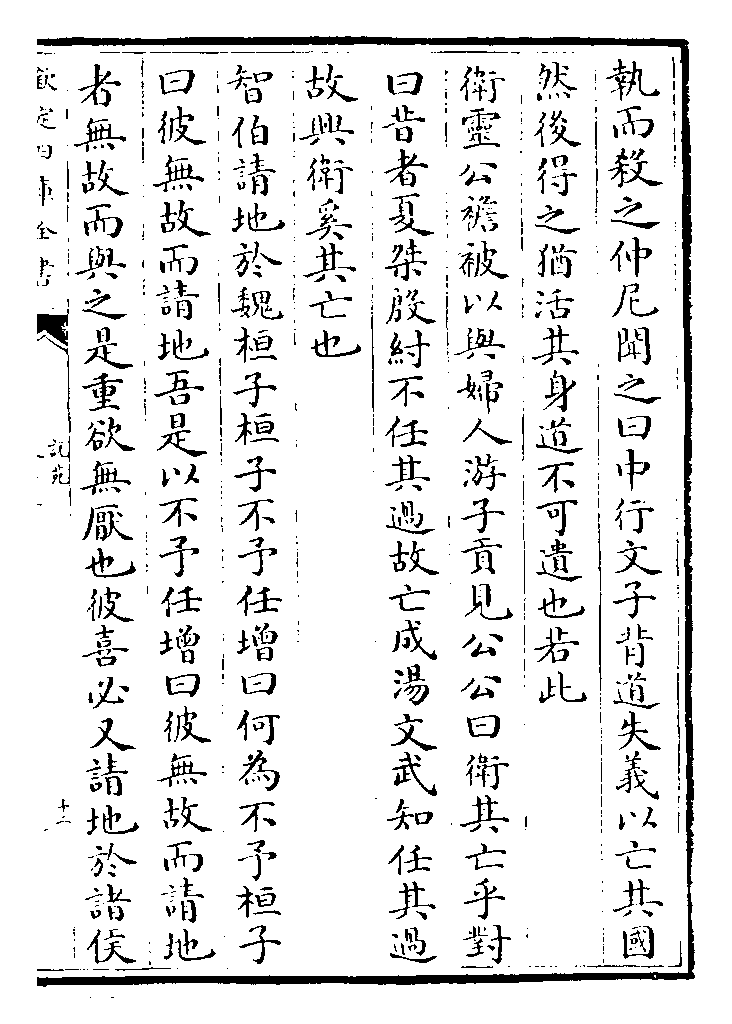 執而殺之仲尼聞之曰中行文子背道失義以亡其國
然後得之猶活其身道不可遺也若此
衛靈公襜被以與婦人游子貢見公公曰衛其亡乎對
曰昔者夏桀殷紂不任其過故亡成湯文武知任其過
故興衛奚其亡也
智伯請地於魏桓子桓子不予任增曰何為不予桓子
曰彼無故而請地吾是以不予任增曰彼無故而請地
者無故而與之是重欲無厭也彼喜必又請地於諸侯
欽定四庫全書
說苑
十二